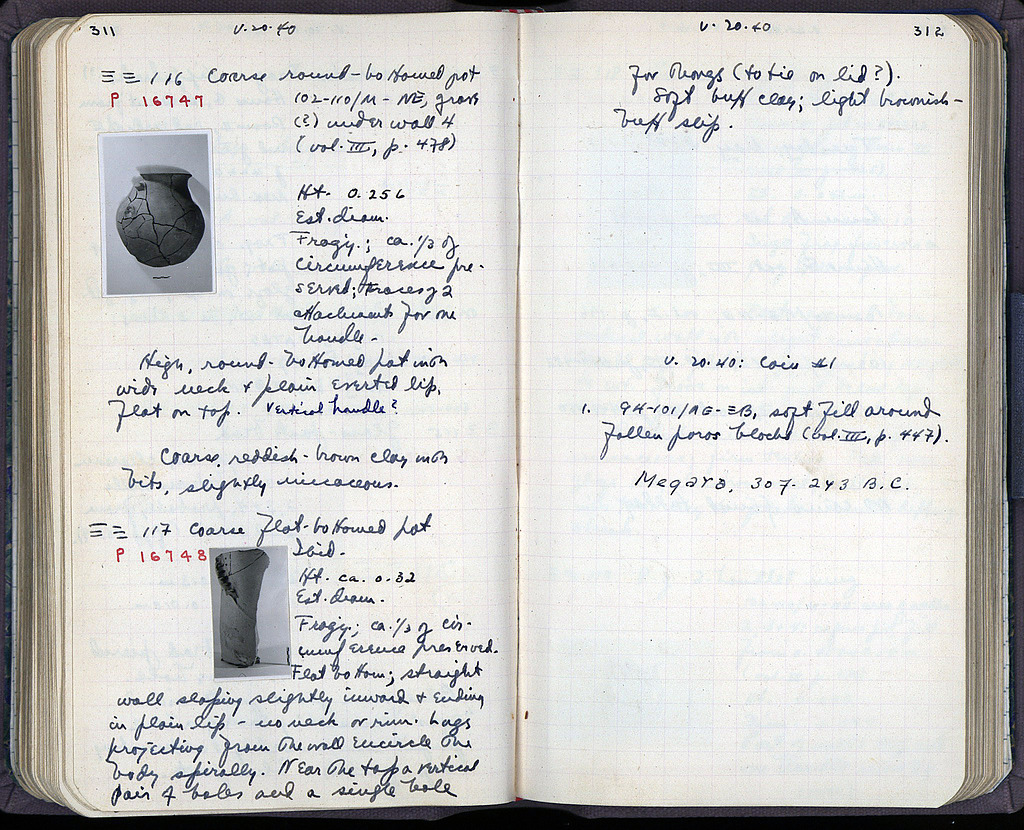 311
V. 20. 40
ΞΞ 116 Coarse round-bottomed pot
P 16747
102-110/M - NE, grave
(?) under wall 4
(vol. III, p. 478)
Ht. 0.256
Est. diam.
Fragy.; ca. 1/3 of
circumference pre-
served; traces of 2
attachments for one
handle.
High, round-bottomed pot with
wide neck & plain everted lip,
flat on top. Vertical handle?
Coarse, reddish-brown clay with
bits, slightly micaceous.
ΞΞ 117 Coarse flat-bottomed pot
P 16748
Ibid.
Ht. ca. 0.32
Est. diam.
Fragy.; ca. 1/3 of cir-
cumference preserved.
Flat bottom; straight
wall sloping slightly inward & ending
in plain lip - no neck or rim. Lugs
projecting from the wall encircle the
body spirally. Near the top a vertical
pair of holes and a single hole
V. 20. 40
312
for thongs (to tie on lid?).
Soft buff clay; light brownish-
buff slip.
V. 20. 40: Coin #1
1. 94-101/ - ΞB, soft fill around
fallen poros blocks (vol. III, p. 447).
Megara, 307-243 B.C.